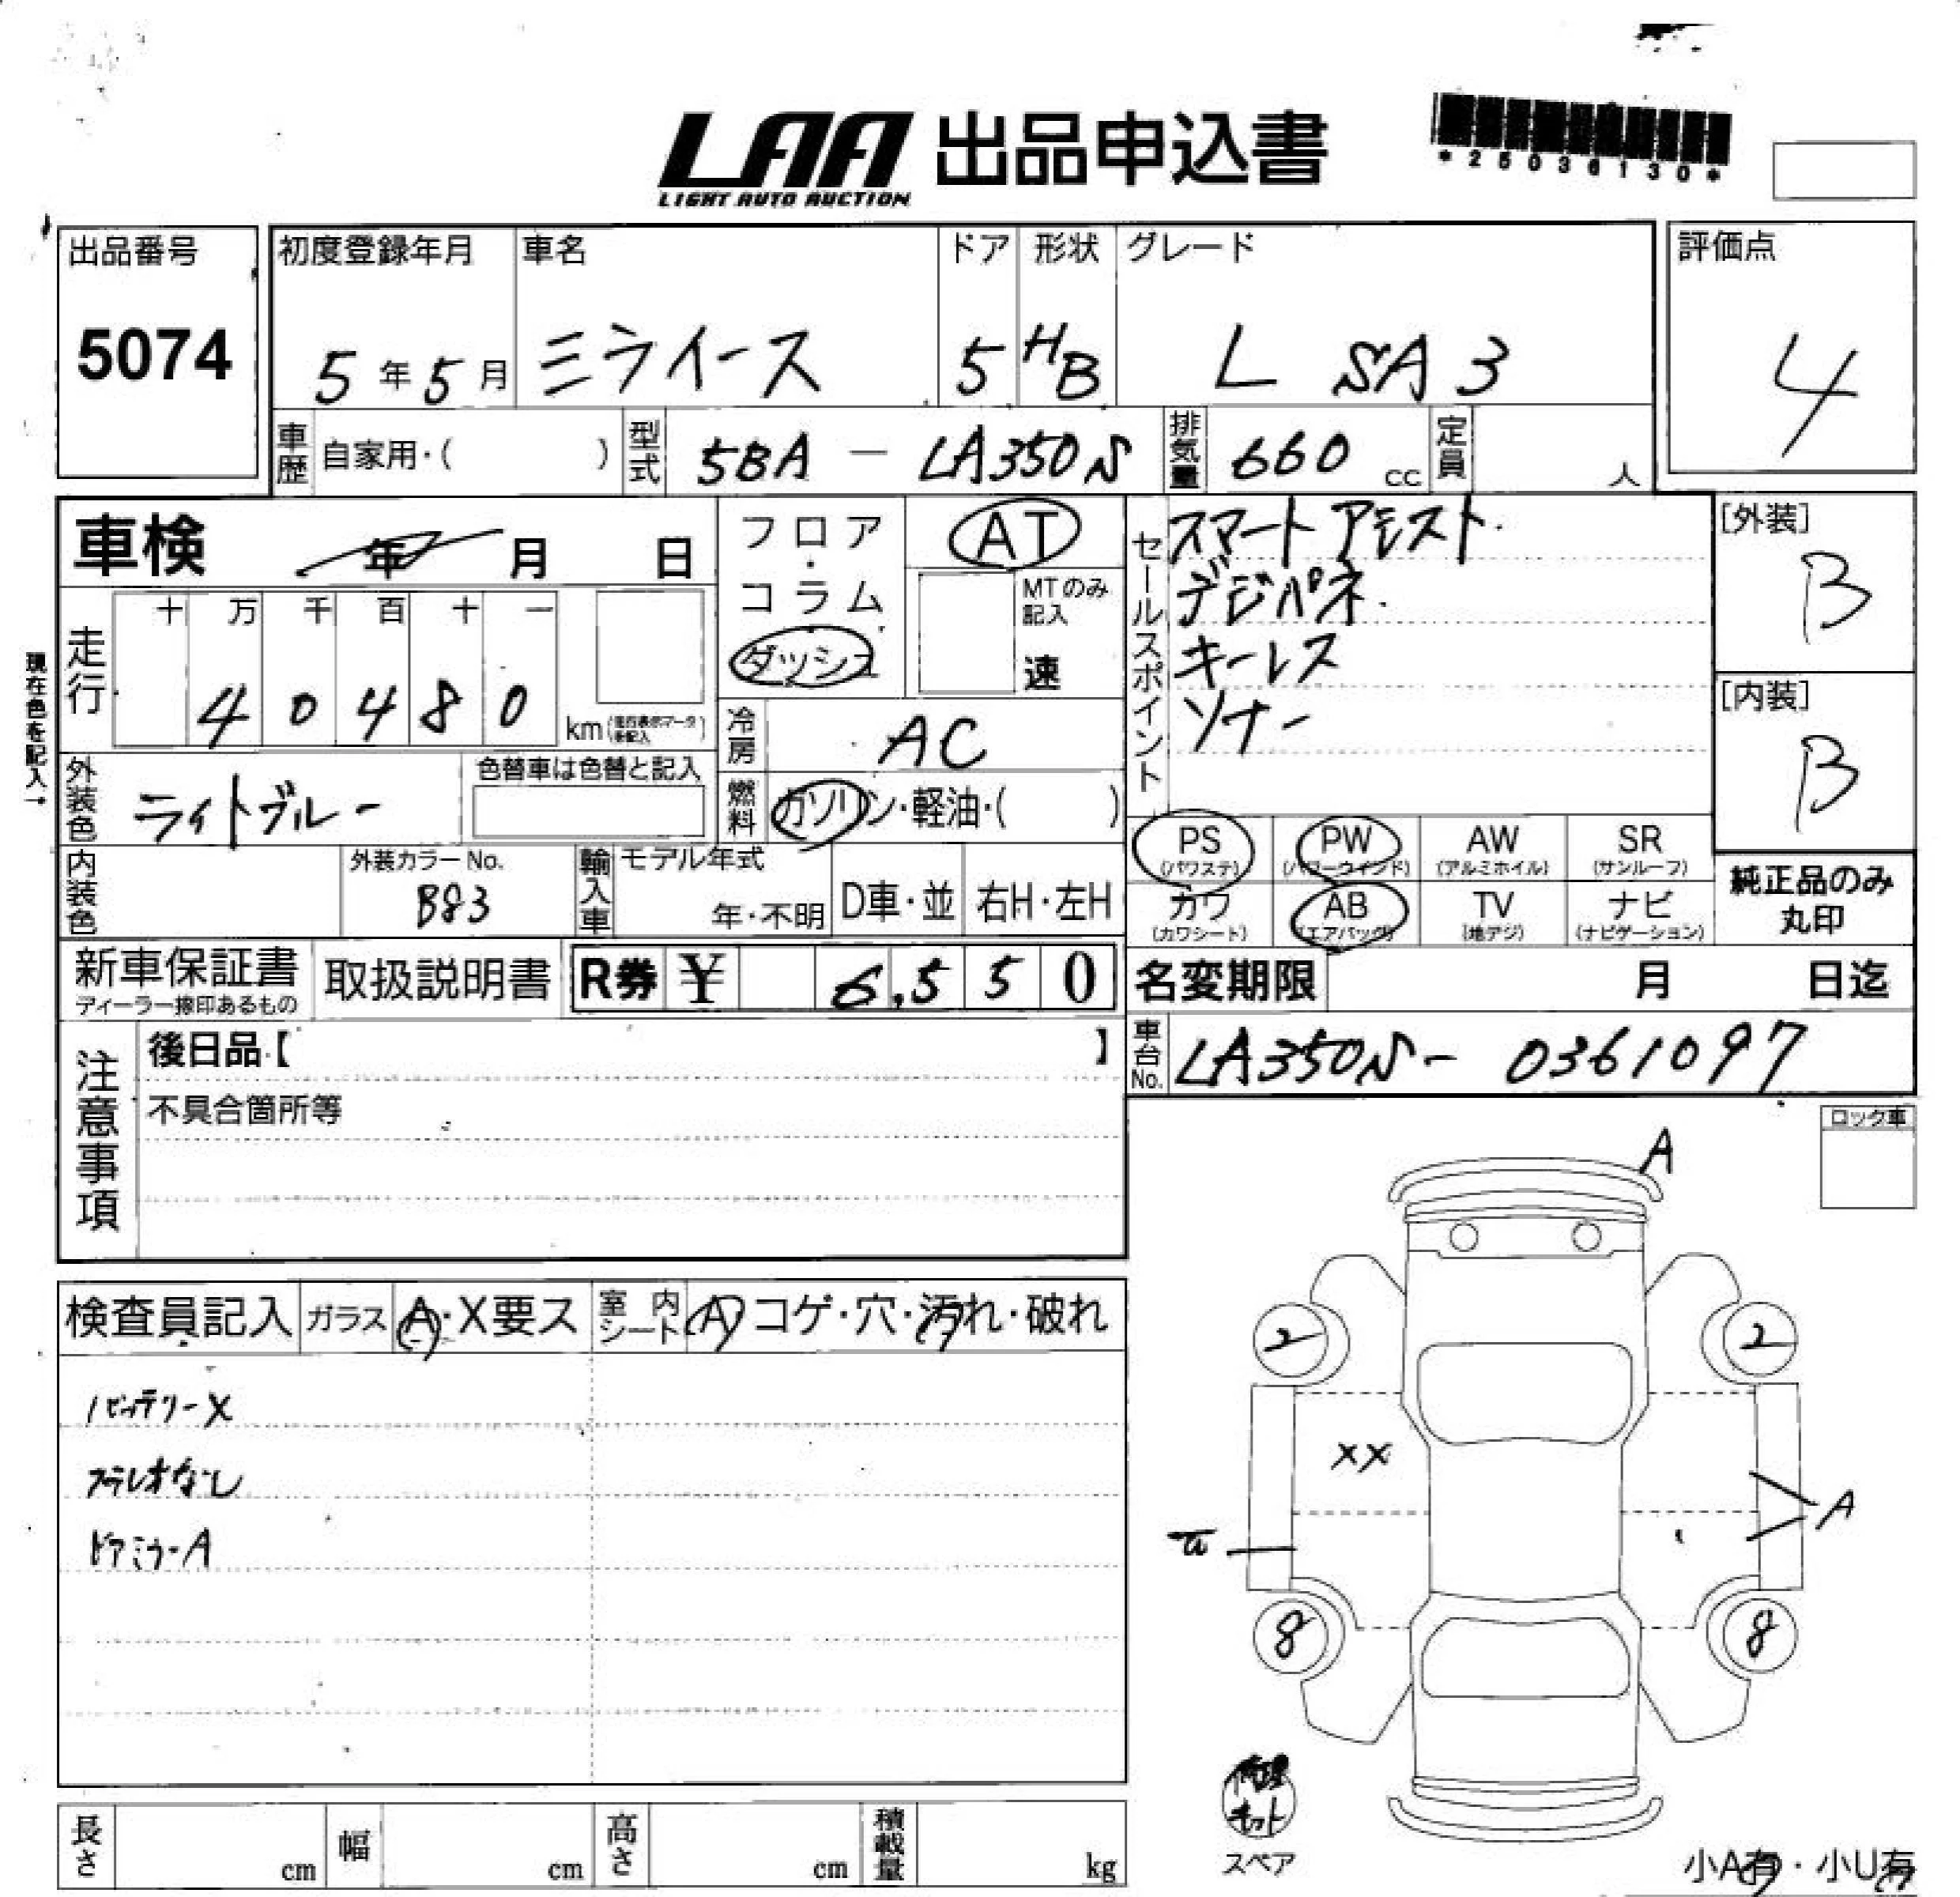 LAA 出品申込書
LIGHT AUTO AUCTION
*25036130*
出品番号
5074
初度登録年月
5年5月
車名
ミライース
ドア
5
形状
HB
グレード
L SA3
評価点
4
車歴 自家用・( )
型式 5BA - LA350S
排気量 660 cc
定員 人
車検 年 月 日
フロア・コラム
ダッシュ
AT
MTのみ記入
速
セールスポイント
スマートアシスト.
デジパネ.
キーレス
ソナー
[外装]
B
[内装]
B
現在色を記入→
走行
十 万 千 百 十 一
4 0 4 8 0 km
冷房 AC
外装色 ライトブルー
色替車は色替と記入
燃料 ガソリン・軽油・( )
PS (パワステ)
PW (パワーウインド)
AW (アルミホイル)
SR (サンルーフ)
カワ (カワシート)
AB (エアバッグ)
TV (地デジ)
ナビ (ナビゲーション)
純正品のみ丸印
内装色
外装カラーNo.
B83
輸入車 モデル年式
年・不明
D車・並
右H・左H
新車保証書
ディーラー捺印あるもの
取扱説明書
R券 ¥ 6,550
名変期限 月 日迄
車台No. LA350S- 0361097
注意事項
後日品【 】
不具合箇所等
ロック車
A
検査員記入
ガラス A・X要ス
室内シート A コゲ・穴・汚れ・破れ
バッテリーX
ステレオなし
ドアミラーA
2 2
XX
A
8 8
修理キット
スペア
小A有・小U有
長さ cm
幅 cm
高さ cm
積載量 kg